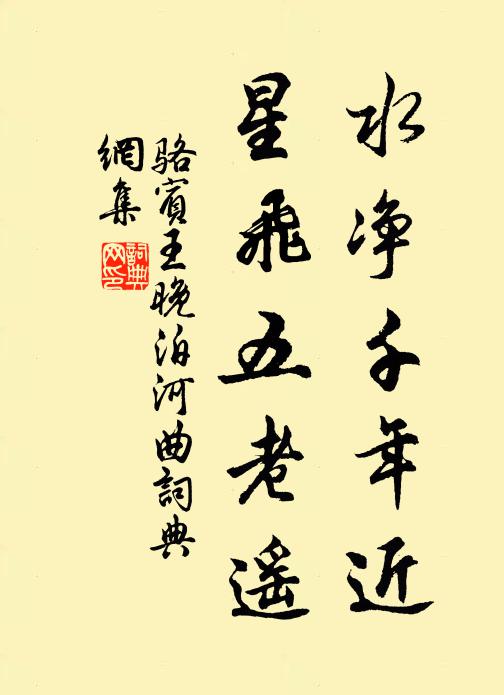 水净千年近
星飛五老遥
骆賓王晚泊河曲詞典
網集
詞典
网印